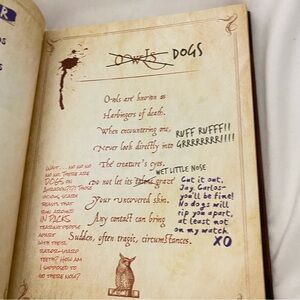 R
Owls DOGS
Owls are known as
Harbingers of death.
When encountering one,
Never look directly into
The creature's eyes,
Do not let its graze
Your uncovered skin.
Any contact can bring
Sudden, often tragic, circumstances.
RUFF RUFFF!!
GRRRRRRRR!!!!
WET LITTLE NOSE
WAIT... NO NO NO
NO NO. THERE ARE
DOGS IN
THOSE
VICIOUS, SCARY
BEASTS THAT
RUN AROUND
IN PACKS
TEARING PEOPLE
APART
WITH THEIR
RAZOR-SHARP
TEETH? HOW AM
I SUPPOSED TO
GO THERE NOW?
Cut it out,
Jay. Carlos–
you'll be fine!
No dogs will
rip you apart,
at least not
on my watch.
XO